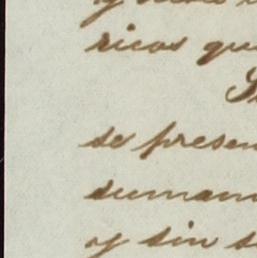 ricos qu
se presen
sumam
y sin s